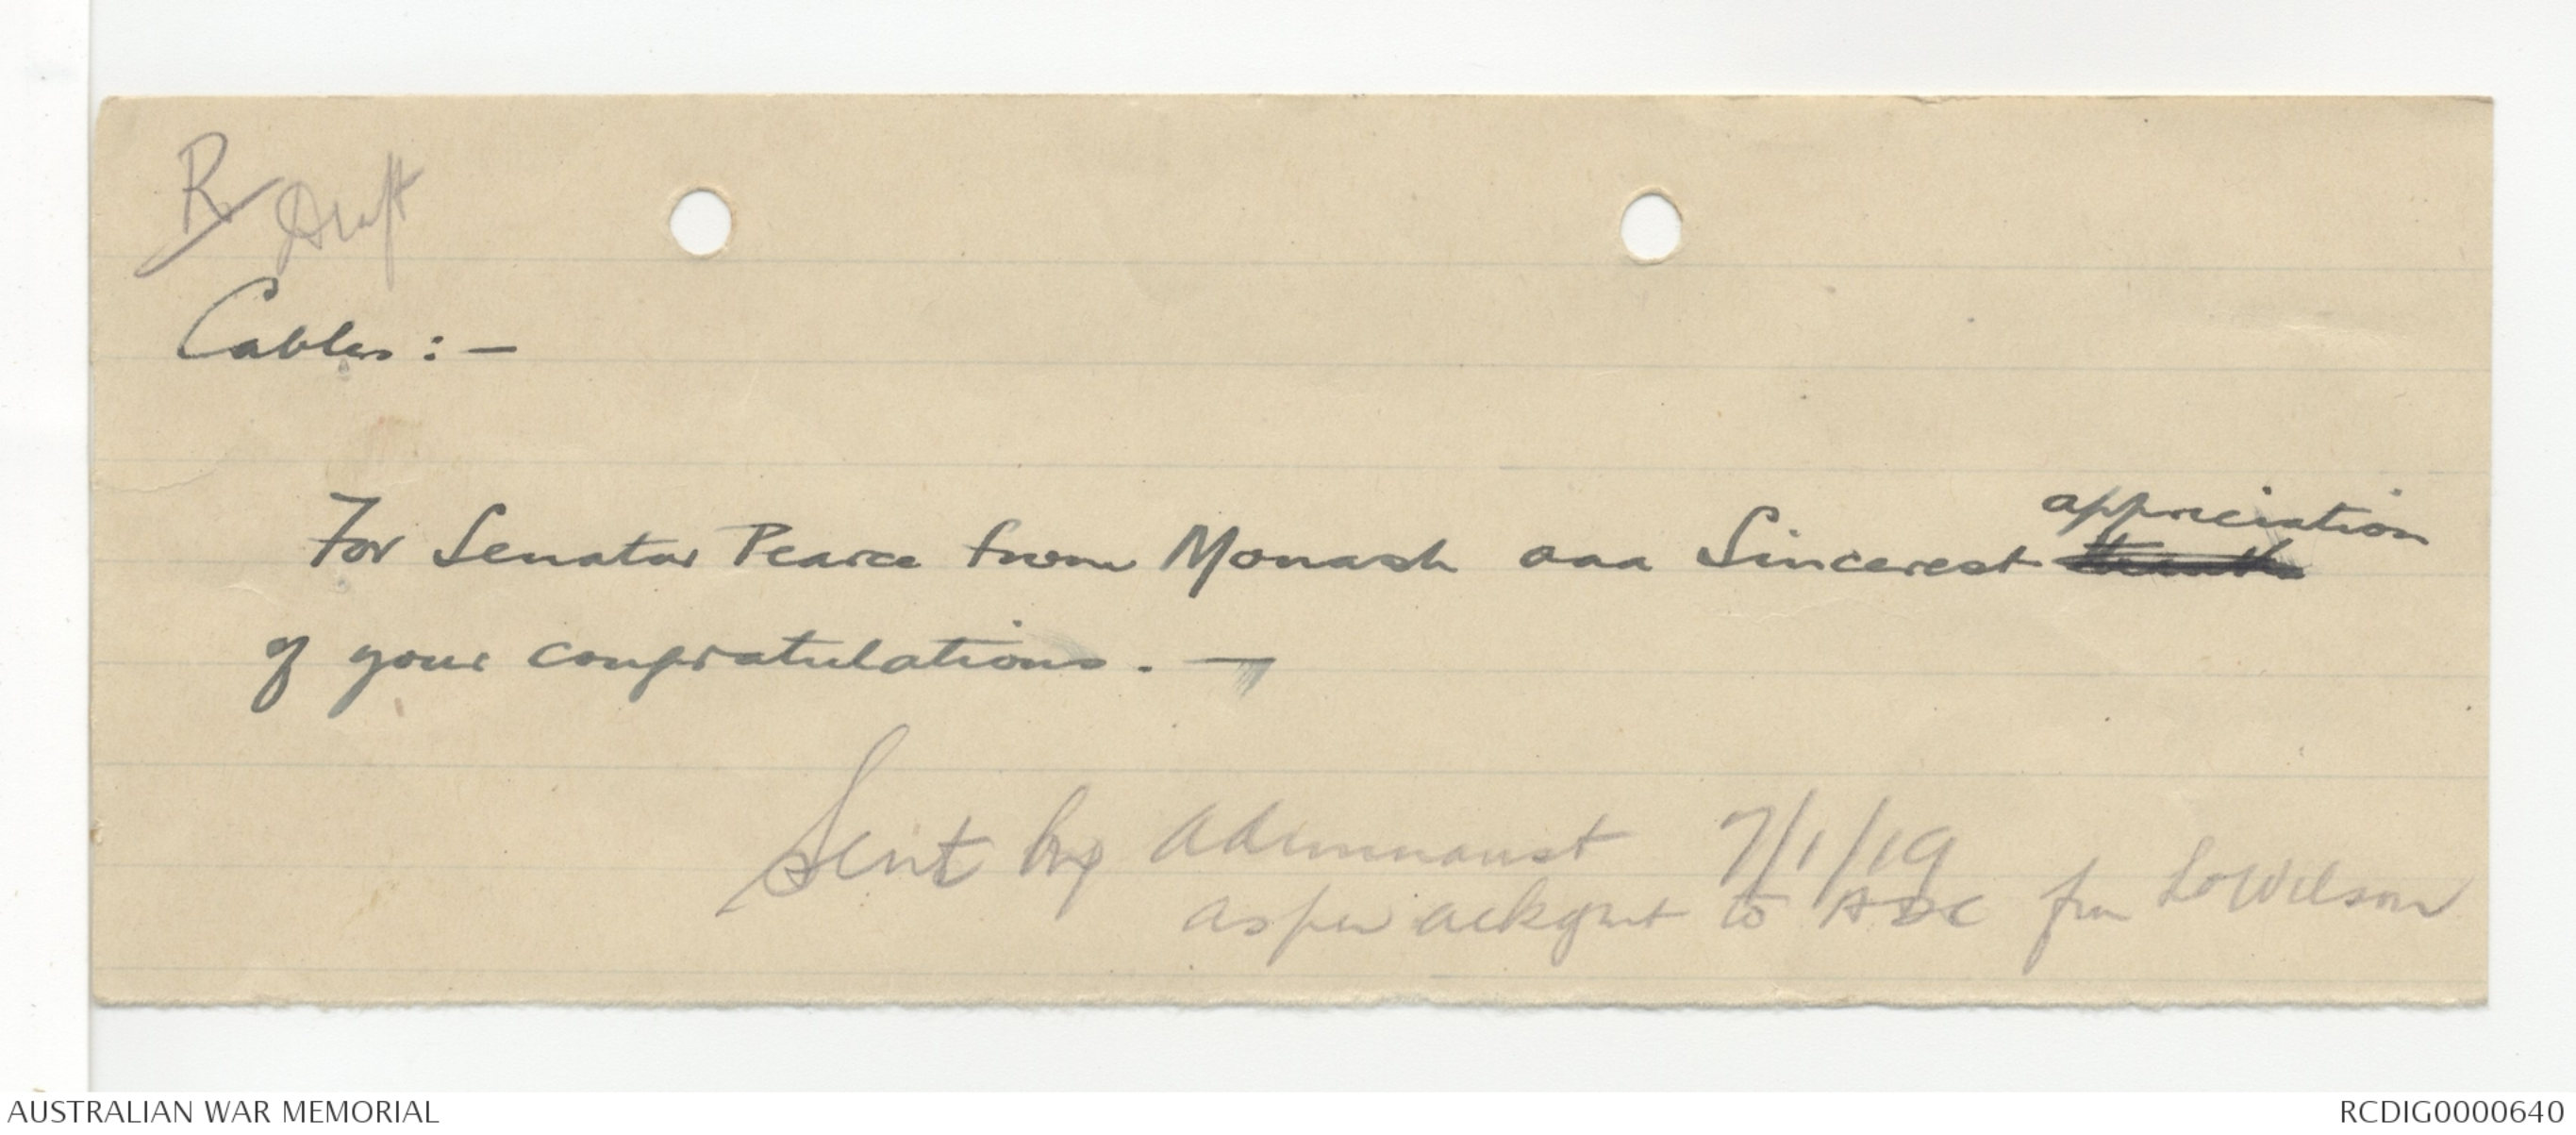 R Draft
Cables :-
For Senator Pearce from Monash aaa Sincerest thanks appreciation
of your congratulations. -
Sent by Adminaust 7/1/19
as per ackgmt to ADC from Lt Wilson
AUSTRALIAN WAR MEMORIAL
RCDIG0000640